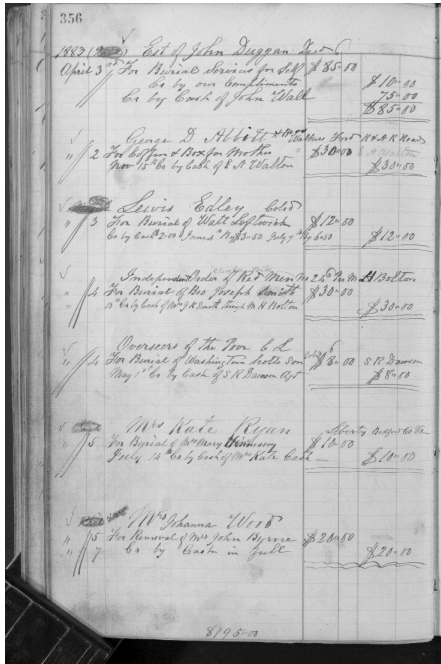 356
1883 Est of John Duggan Decd
April 3rd For Burial Services for Self $85.00
Cr by our Compliments $10.00
Cr by Cash of John Wall 75.00
$85.00
George D Abbitt Walkers Ford R & A R Road
" 2 For Coffin & Box for Mother " $30.00
Nov 15th Cr by Cash of E A Walton $30.00
Lewis Edley Cold
" 3 For Burial of Walt Leftwich $12.00
Cr by Cash 2.00 June 5th By 3.50 July 9th By 6.50 $12.00
Independent Order of Red Men No 24 Per M H Bolton
" 4 For Burial of Geo Joseph Smith $30.00
15th Cr by Cash of Mrs J R Smith through M H Bolton
$30.00
Overseers of the Poor C L
" 4 For Burial of Washington Scotts Son $8.00 S R Dawson
May 1st Cr By Cash of S R Dawson Agt $8.00
Mrs Kate Ryan Liberty Bedford Co Va
" 5 For Burial of Mrs Mary $10.00
July 14th Cr by Cash of Mrs Kate $10.00
Mrs Johanna Wood
" 5 For Removal of Mrs John Byrne $20.00
" 7 Cr by Cash in full $20.00
$195.00